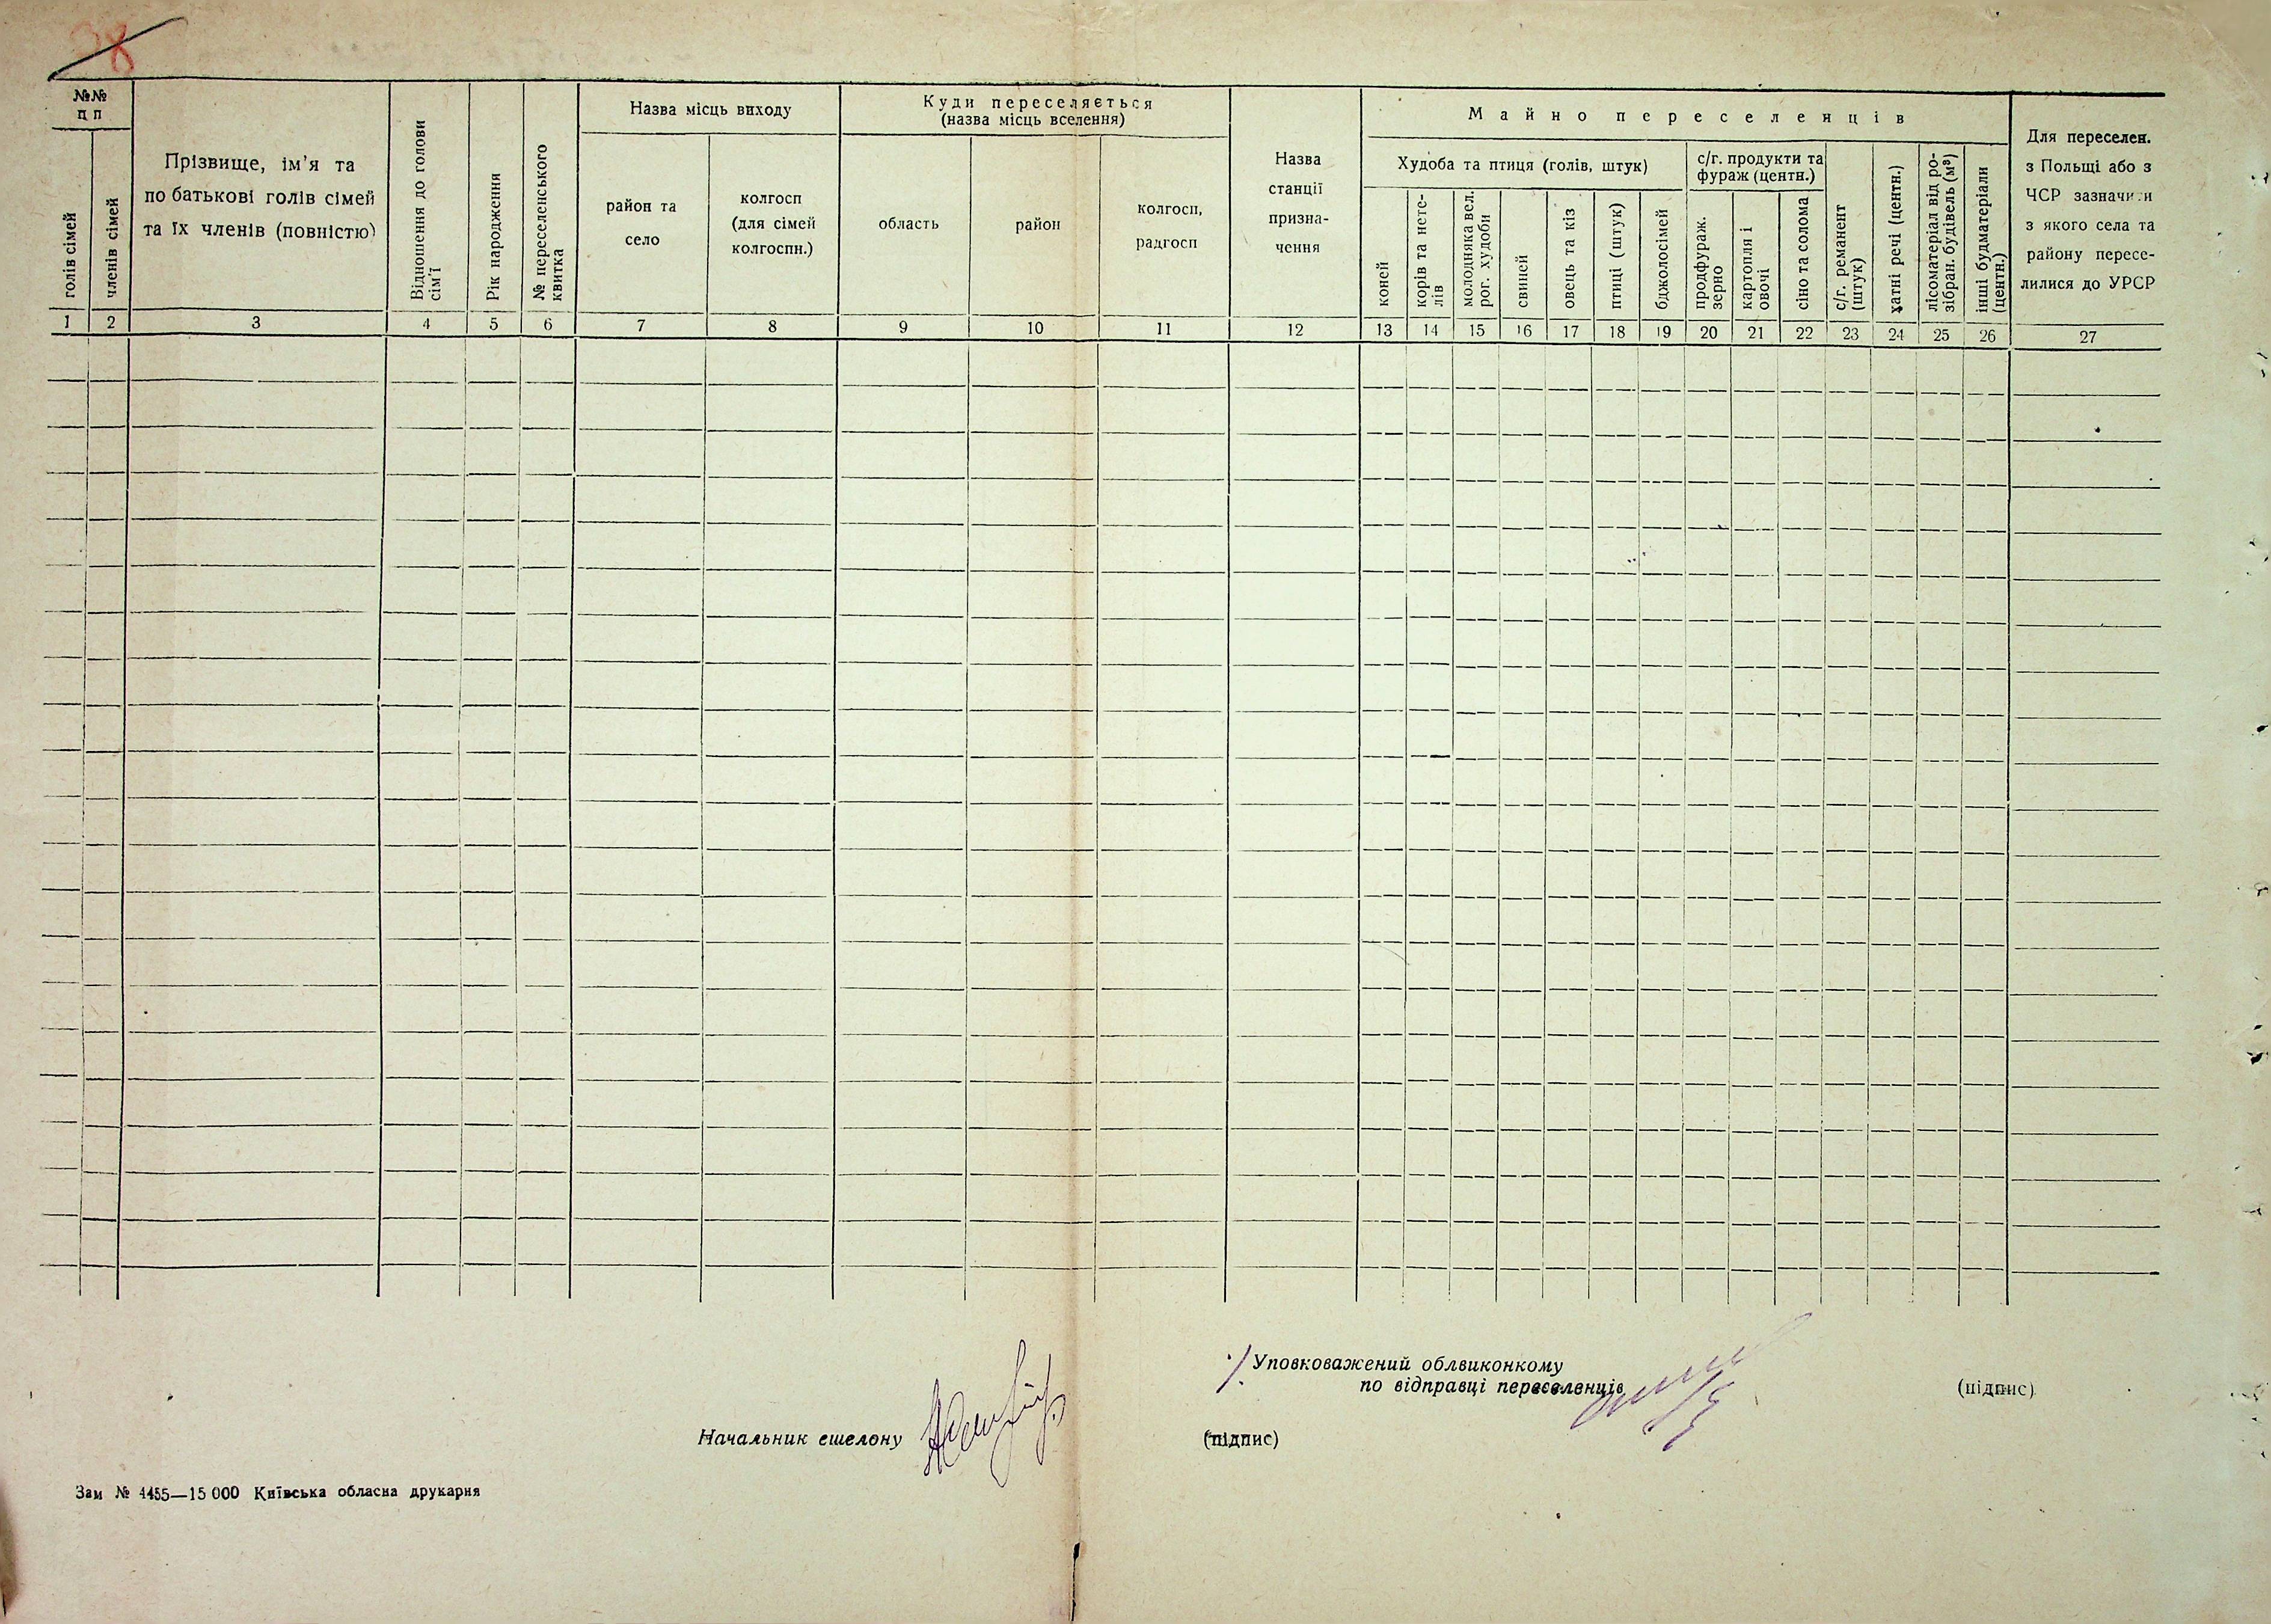 98
№№
п п
голів сімей
членів сімей
Прізвище, ім'я та
по батькові голів сімей
та їх членів (повністю)
Відношення до голови
сім'ї
Рік народження
№ переселенського
квитка
Назва місць виходу
район та
село
колгосп
(для сімей
колгоспн.)
Куди переселяється
(назва місць вселення)
область
район
колгосп,
радгосп
Назва
станції
призна-
чення
Майно переселенців
Худоба та птиця (голів, штук)
коней
корів та нете-
лів
молодняка вел.
рог. худоби
свиней
овець та кіз
птиці (штук)
бджолосімей
с/г. продукти та
фураж (центн.)
продфураж.
зерно
картопля і
овочі
сіно та солома
с/г. реманент
(штук)
хатні речі (центн.)
лісоматеріал від ро-
зібран. будівель (м³)
інші будматеріали
(центн.)
Для переселен.
з Польщі або з
ЧСР зазначити
з якого села та
району пересе-
лилися до УРСР
1 2 3 4 5 6 7 8 9 10 11 12 13 14 15 16 17 18 19 20 21 22 23 24 25 26 27
Уповковажений облвиконкому
по відправці переселенців (підпис)
Начальник ешелону (підпис)
Зам № 4455—15 000 Київська обласна друкарня